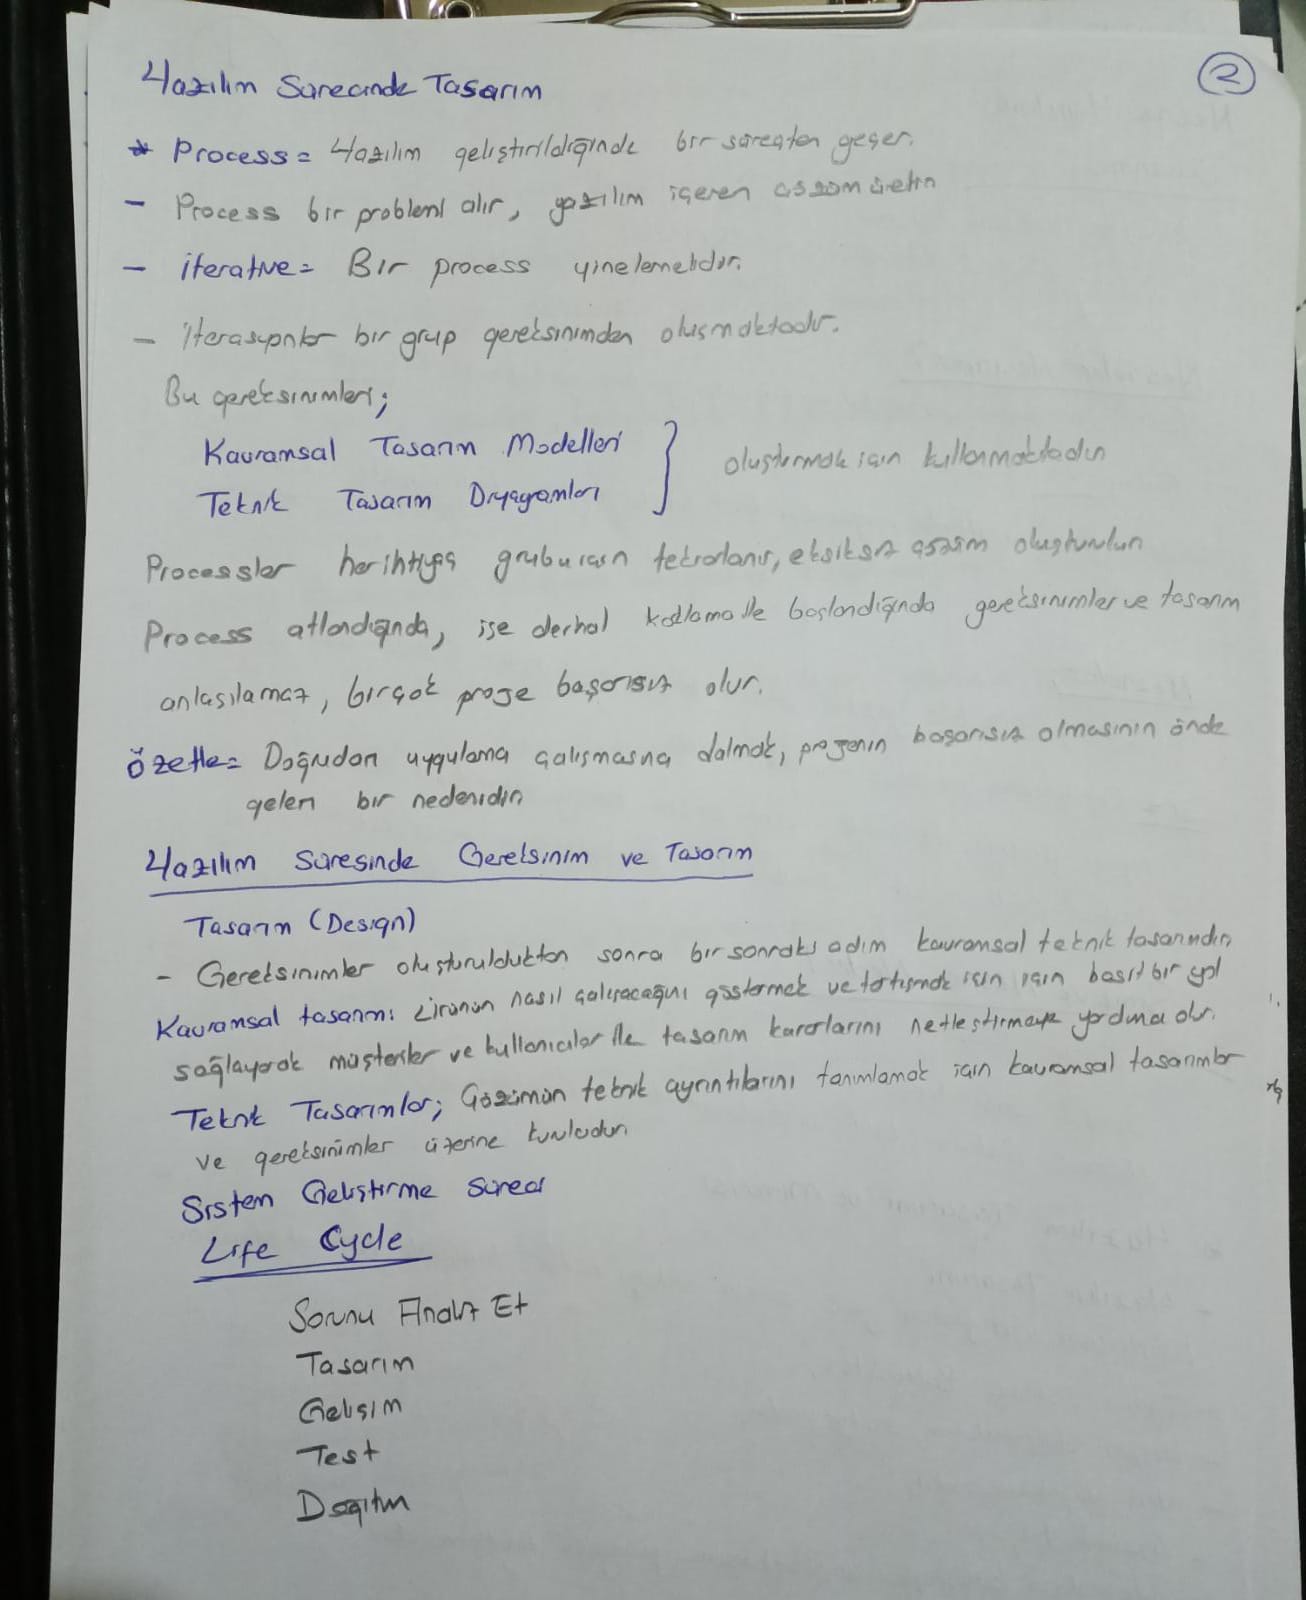 2
Yazılım Sürecinde Tasarım
* Process = Yazılım geliştirildiğinde bir süreçten geçer.
- Process bir problemi alır, yazılım içeren çözüm üretir
- iterative = Bir process yinelemelidir.
- iterasyonlar bir grup gereksinimden oluşmaktadır.
Bu gereksinimleri;
Kavramsal Tasarım Modelleri
Teknik Tasarım Diyagramları } oluşturmak için kullanmaktadır
Processler her ihtiyaç grubu için tekrarlanır, eksiksiz çözüm oluşturulur.
Process atlandığında, işe derhal kodlama ile başlandığında gereksinimler ve tasarım
anlaşılamaz, birçok proje başarısız olur.
özetle = Doğrudan uygulama çalışmasına dalmak, projenin başarısız olmasının önde
gelen bir nedenidir
Yazılım Süresinde Gereksinim ve Tasarım
Tasarım (Design)
- Gereksinimler oluşturulduktan sonra bir sonraki adım kavramsal teknik tasarımdır
Kavramsal tasarım: nasıl çalışacağını göstermek ve tartışmak için için basit bir yol
sağlayarak müşteriler ve kullanıcılar ile tasarım kararlarını netleştirmeye yardımcı olur.
Teknik Tasarımlar; Çözümün teknik ayrıntılarını tanımlamak için kavramsal tasarımlar
ve gereksinimler üzerine kuruludur
Sistem Geliştirme Süreci
Life Cycle
Sorunu Analiz Et
Tasarım
Gelişim
Test
Dağıtım